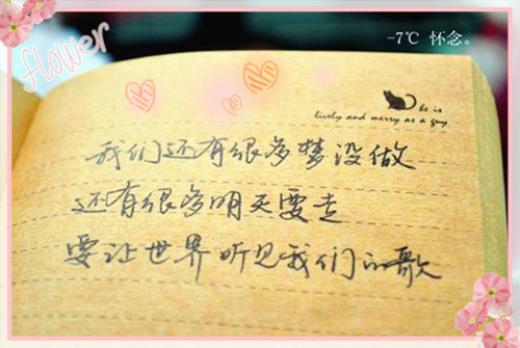 flower
-7℃ 怀念。
he is
lively and merry as a guy
我们还有很多梦没做
还有很多明天要走
要让世界听见我们的歌